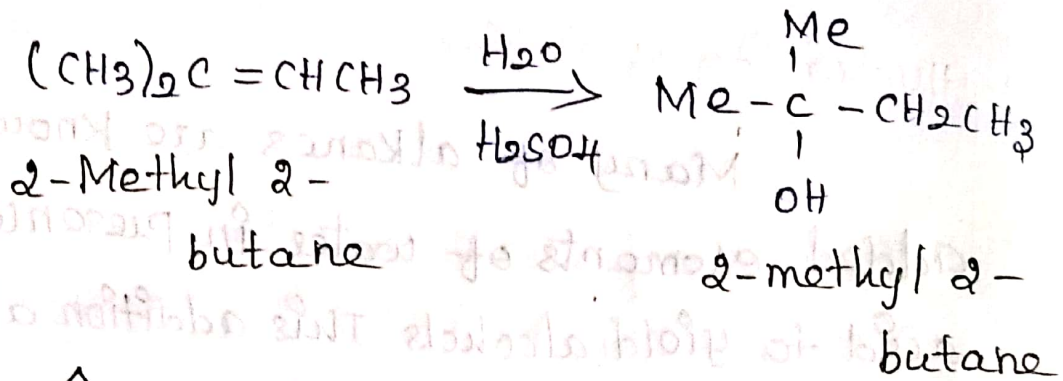 Me
(CH3)2C = CHCH3 H2O H2SO4 Me - C - CH2CH3
OH
2-Methyl 2-
butane
2-methyl 2-
butane